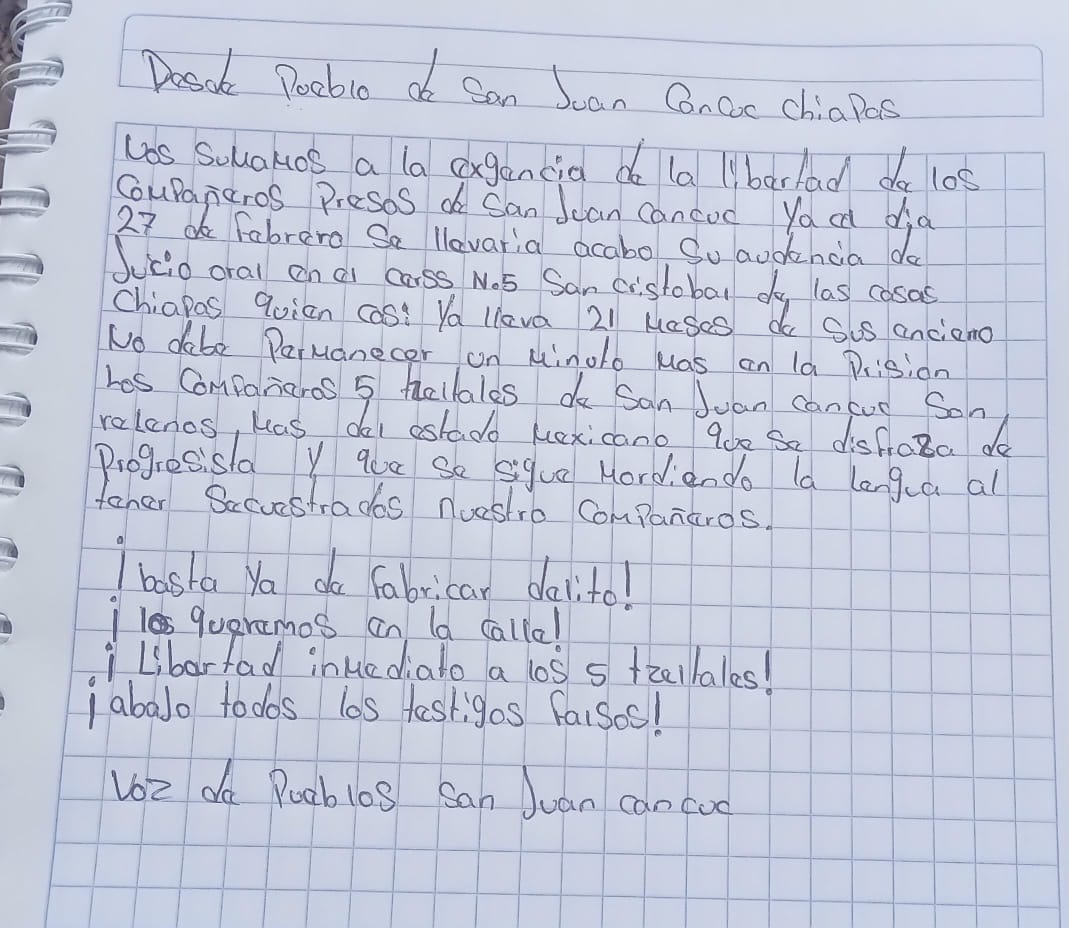 Desde Pueblo de San Juan Cancuc chiapas
Nos sumamos a la exgencia de la libertad de los
Compañeros Presos de San Juan cancuc ya el dia
27 de Febrero se llevaria acabo su audencia de
Jucio oral en el carss No.5 San cristobal de las casas
Chiapas quien casi ya lleva 21 meses de sus anciano
No debe Permanecer un minuto mas en la Prision
Los Compañeros 5 tzeltales de San Juan cancuc Son
relenos, mas del estado mexicano que se disfraza de
Progresista y que se sigue mordiendo la lengua al
tener Secuestrados nuestro compañeros.
¡basta ya de fabricar delito!
¡los queremos en la calle!
¡Libertad inmediato a los 5 tzeltales!
¡abaJo todos los testigos falsos!
Voz de Pueblos San Juan cancuc